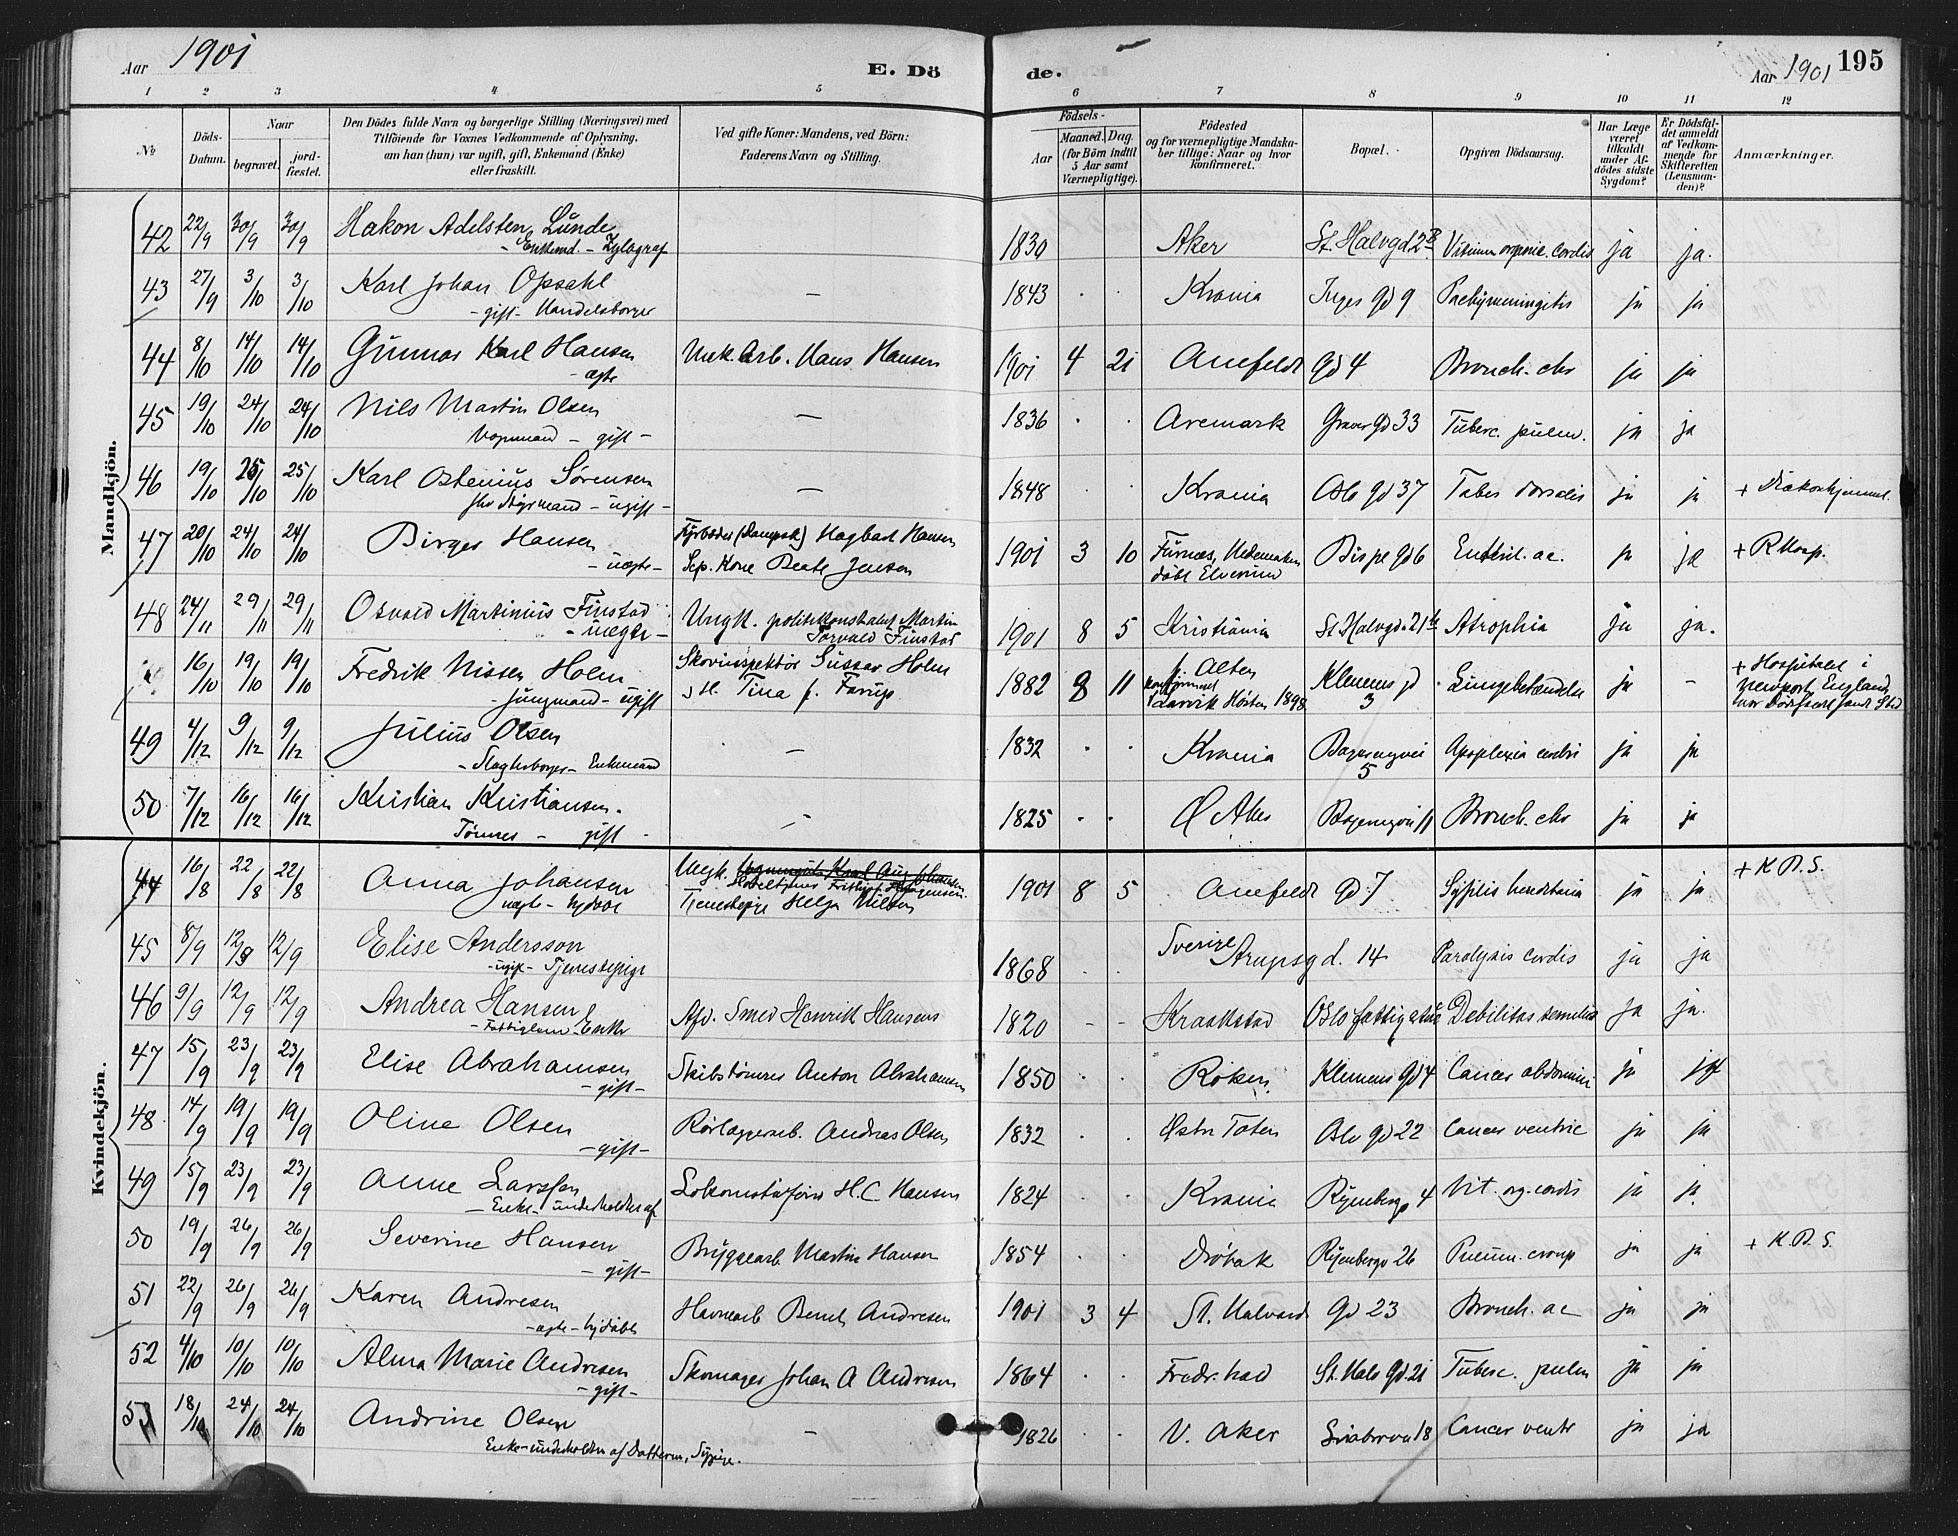 Aar 1901
E. Döde.
Aar 1901
195
1 2 3 4 5 6 7 8 9 10 11 12
No
Döds-Datum.
Naar
begravet.
jord-fæstet.
Den Dödes fulde Navn og borgerlige Stilling (Næringsvei) med
Tilföiende for Voxnes Vedkommende af Oplysning,
om han (hun) var ugift, gift, Enkemand (Enke)
eller fraskilt.
Ved gifte Koner: Mandens, ved Börn:
Faderens Navn og Stilling.
Födsels-
Aar
Maaned. Dag.
(for Börn indtil
5 Aar samt
Værnepligtige).
Födested
og for værnepligtige Mandska-
ber tillige: Naar og hvor
konfirmeret.
Bopæl.
Opgiven Dödsaarsag.
Har Læge
været
tilkaldt
under Af-
dödes sidste
Sygdom?
Er Dödsfal-
det anmeldt
af Vedkom-
mende for
Skifteretten
(Lensman-
den)?
Anmærkninger.
Mandkjön.
42 22/9 30/9 30/9 Hakon Adelsten Lunde 1830 Aker St. Halvgd 2B Vitium organic. cordis ja ja.
- Enkemd. - Zylograf
43 27/9 3/10 3/10 Karl Johan Opsahl — 1843 Krania Inges Gd 9 Pachymeningitis ja ja
- gift - Handelsborger
44 8/10 14/10 14/10 Gunnar Karl Hansen Arb. Hans Hansen 1901 4 21 Anefeldt Gd 4 Bronch. chr ja ja
- ægte
45 19/10 24/10 24/10 Nils Martin Olsen — 1836 Aremark Graver Gd 33 Tuberc. pulm. ja ja
Vognmand - gift -
46 19/10 25/10 25/10 Karl Ostenius Sørensen — 1848 Krania Oslo Gd 37 Tabes dorsalis ja ja + Diakonhjemmet
Styrmand - ugift -
47 20/10 24/10 24/10 Birger Hansen Fyrbøder (Dampsk) Hagbart Hansen 1901 3 10 Furnæs, Hedemarken Bispe Gd 6 Enterit. ac. ja ja + R Hosp.
- uægte - Sep. Kone Beate Jensen døbt Elverum
48 24/11 29/11 29/11 Osvald Martinius Finstad Ungk. politikonstabel Martin 1901 8 5 Kristiania St. Halvgd. 21 Atrophia ja ja.
- uægte - Torvald Finstad
16/10 19/10 19/10 Fredrik Nissen Holm Skovinspektør Gustav Holm 1882 9 11 f. Alten Klemens gd 3 Lungebetændelse ja - + Hospitalet i
- Jungmand - ugift og H. Tina f. Farup konfirmert Larvik Høsten 1898 Newport, England
49 4/12 9/12 9/12 Julius Olsen — 1832 Krania 5 Apoplexia cerebri ja ja
- Slagterborger - Enkemand
50 7/12 16/12 16/12 Kristian Kristiansen — 1825 Ø Aker 11 Bronch. chr ja ja
Tømres - gift -
Kvindekjön.
44 16/8 22/8 22/8 Anna Johansen Ungk. 1901 8 5 Anefeldt Gd. 7 Syfilis hereditaria ja ja + K. D. S.
uægte - hjdøbt Tjenestepige Helga Nilsen
45 8/9 12/9 12/9 Elise Andersson 1868 Sverige Arupsgd. 14 Paralysis cordis ja ja
- ugift - Tjenestepige
46 9/9 12/9 12/9 Andrea Hansen Afd. Smed Henrik Hansens 1820 - - Kraakstad Oslo fattigstue Debilitas senilis ja ja.
- Fattiglem - Enke
47 15/9 23/9 23/9 Elise Abrahamsen Skibstømrer Anton Abrahamsen 1850 Røken Klemens Gd 4 Cancer abdomini ja ja
- gift -
48 14/9 19/9 19/9 Oline Olsen Rørlæggerarb. Andreas Olsen 1832 Østre Toten Oslo Gd 22 Cancer ventric ja ja
- gift -
49 15/9 23/9 23/9 Anne Larssen Lokomotivfører H. C. Hansen 1824 Krania Ryenbergv 4 Vit. org. cordis ja ja
- Enke - underholdtes af
50 19/9 26/9 26/9 Severine Hansen Bryggearb Martin Hansen 1854 Drøbak Ryenbergv 26 Pneum. croup ja ja + K. D. S.
- gift -
51 22/9 26/9 26/9 Karen Andresen Havnearb Bernt Andresen 1901 3 4 St. Halvards Gd 23 Bronch. ac ja ja
- ægte - hjdøbt
52 4/10 10/10 10/10 Alma Marie Andresen Skomager Johan A Andresen 1864 Fredr.hald St. Halv Gd. 21 Tuberc. pulm ja ja
- gift -
53 18/10 24/10 24/10 Andrine Olsen — 1826 V. Aker 18 Cancer ventr ja ja
Enke - underholdes af Datteren, Sypige.